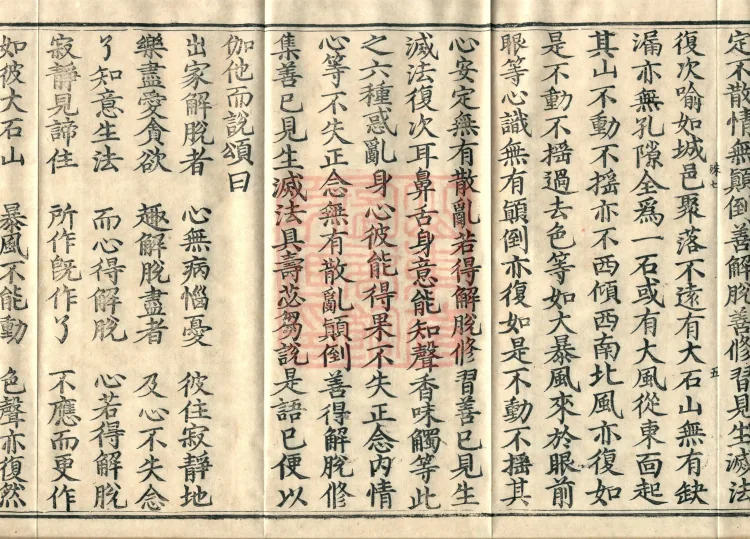 定不散情無顛倒善解脫善修習見生滅法
復次喻如城邑聚落不遠有大石山無有缺
漏亦無孔隙全爲一石或有大風從東面起
其山不動不搖亦不西傾西南北風亦復如
是不動不搖過去色等如大暴風來於眼前
眼等心識無有顚倒亦復如是不動不搖其
心安定無有散亂若得解脫修習善已見生
滅法復次耳鼻舌身意能知聲香味觸等此
之六種惑亂身心彼能得果不失正念内情
心等不失正念無有散亂顚倒善得解脫修
集善已見生滅法具壽苾芻說是語已便以
伽他而說頌曰
出家解脫者 心無病惱憂 彼住寂靜地
樂盡愛貪欲 趣解脫盡者 及心不失念
了知意生法 而心得解脫 心若得解脫
寂靜見諦住 所作旣作了 不應而更作
如彼大石山 暴風不能動 色聲亦復然